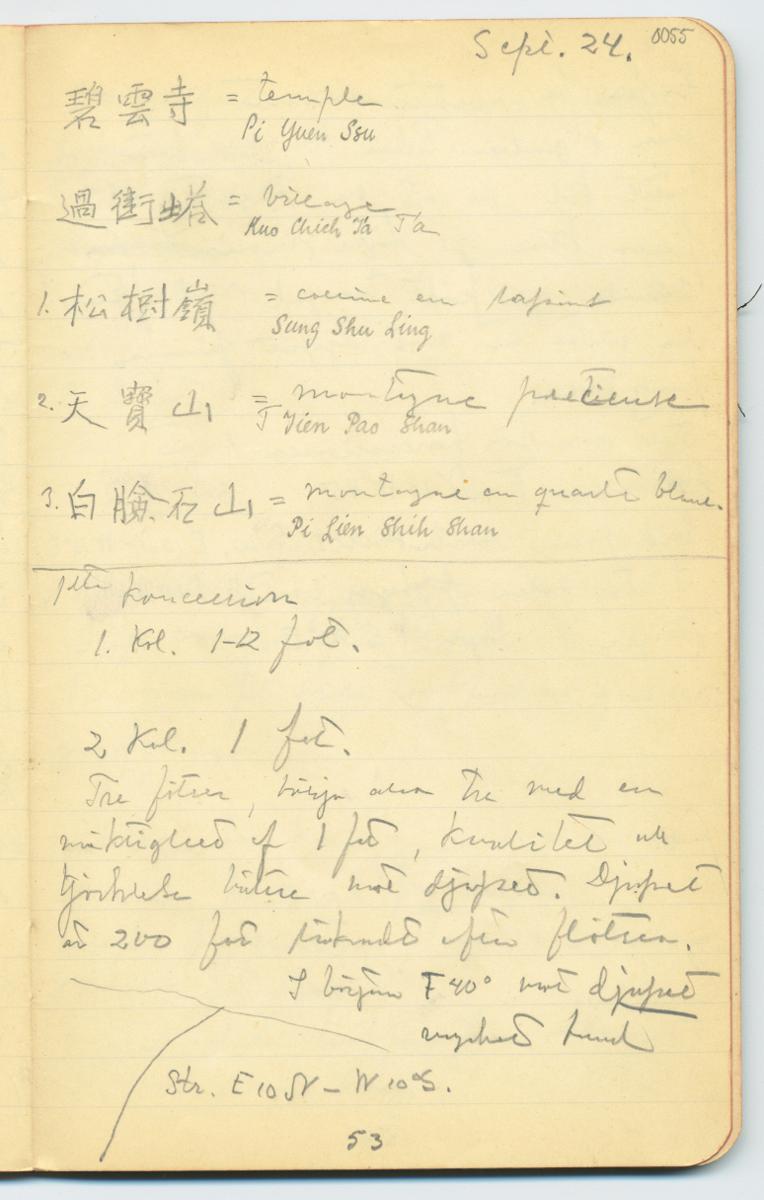 Sept. 24. 0055
碧雲寺 = temple
Pi Yuen Ssu
過街塔 = village
Kuo Chieh Ta Ta
1. 松樹嶺 = colline en
Sung Shu Ling
2. 天寶山 = montagne precieuse
T Tien Pao Shan
3. 白臉石山 = montagne en quartz blanc.
Pi Lien Shih Shan
koncession
1. Kol. 1-12 fot.
2 Kol. 1 fot.
Tre flötser, börja alla tre med en
mäktighed af 1 fot, kvalitet och
tjocklek bättre mot djupet. Djupet
är 200 fot räknadt efter flötsen.
I början F 40° mot djupet
mycket
Str. E 10 N – W 10° S.
53